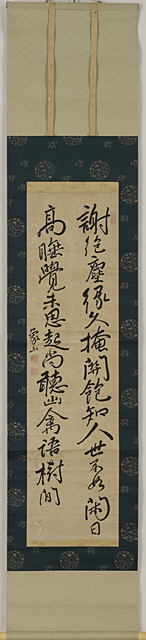 謝絶塵縁久掩關飽知人世不如閑日
高睡覺未思起尚聽幽禽語樹間
象山